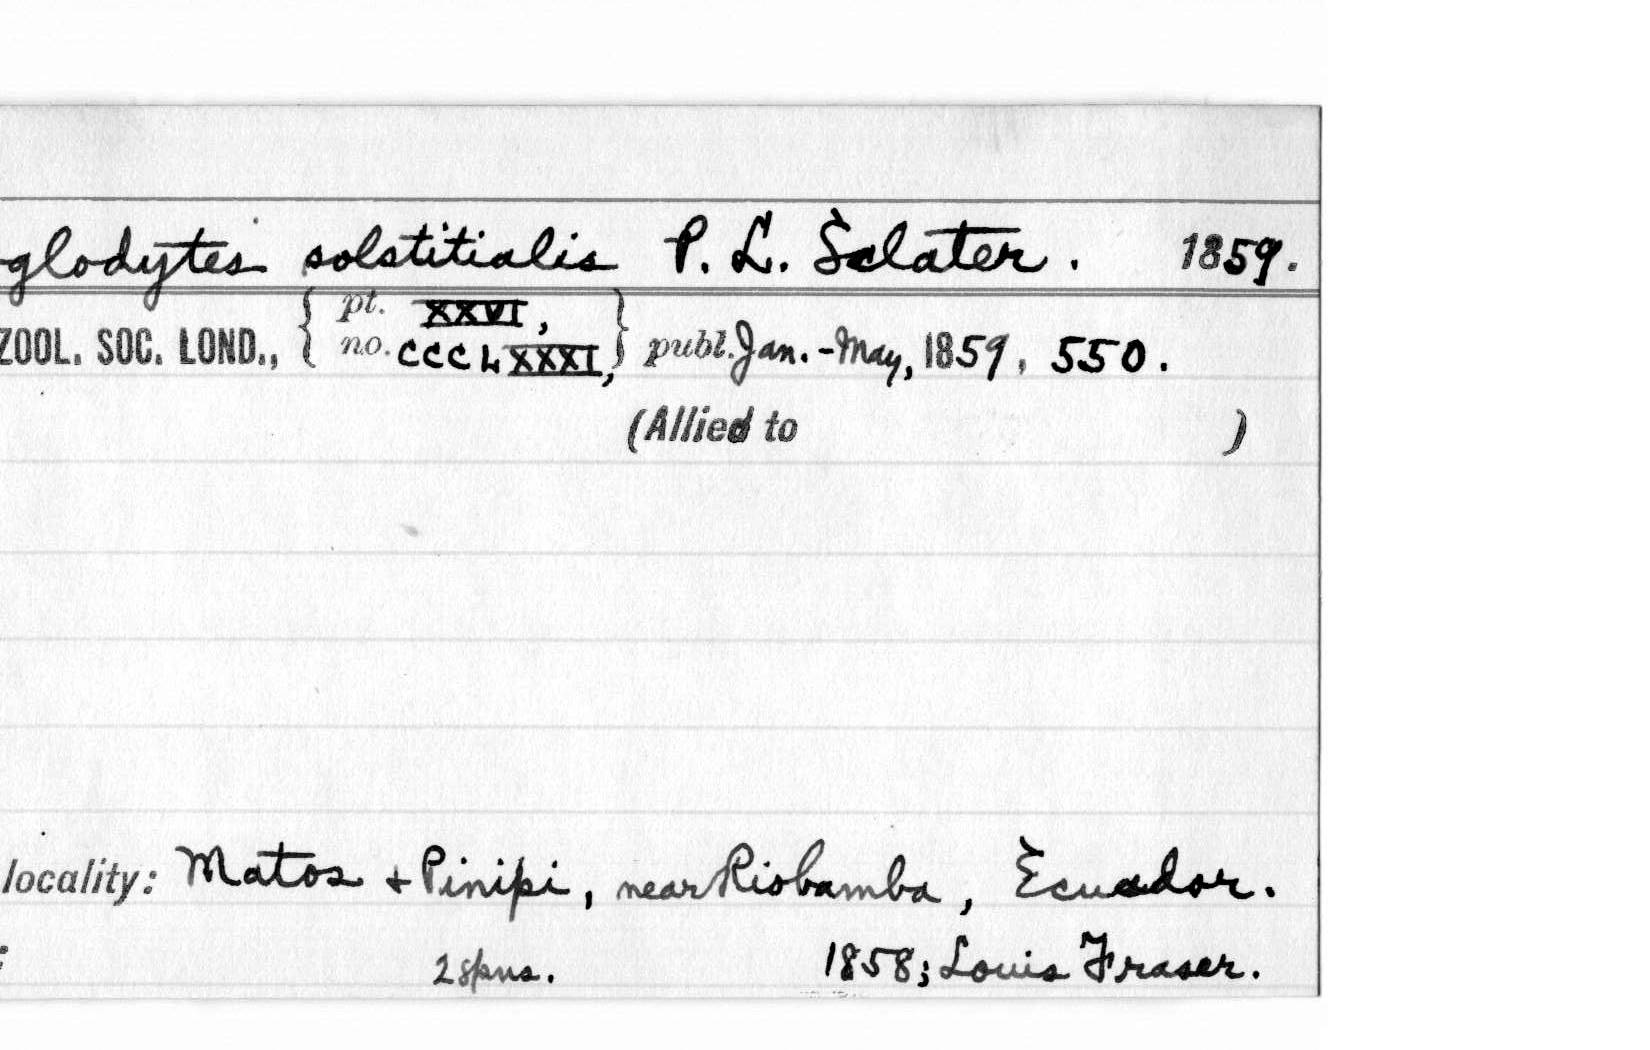 glodytes solstitialis P. L. Sclater. 1859.
ZOOL. SOC. LOND., { pt. XXVI,
no. CCCLXXXI, } publ. Jan.-May, 1859, 550.
(Allied to )
locality: Matos + Pinipi, near Riobamba, Ecuador.
: 2 spns. 1858; Louis Fraser.